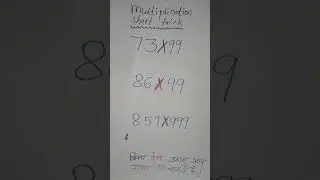 Multiplication
short trick
73X99
86X99
857X999
बिना पेन उठाए आप